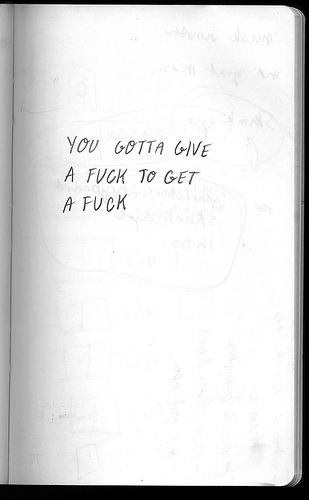 YOU GOTTA GIVE
A FUCK TO GET
A FUCK